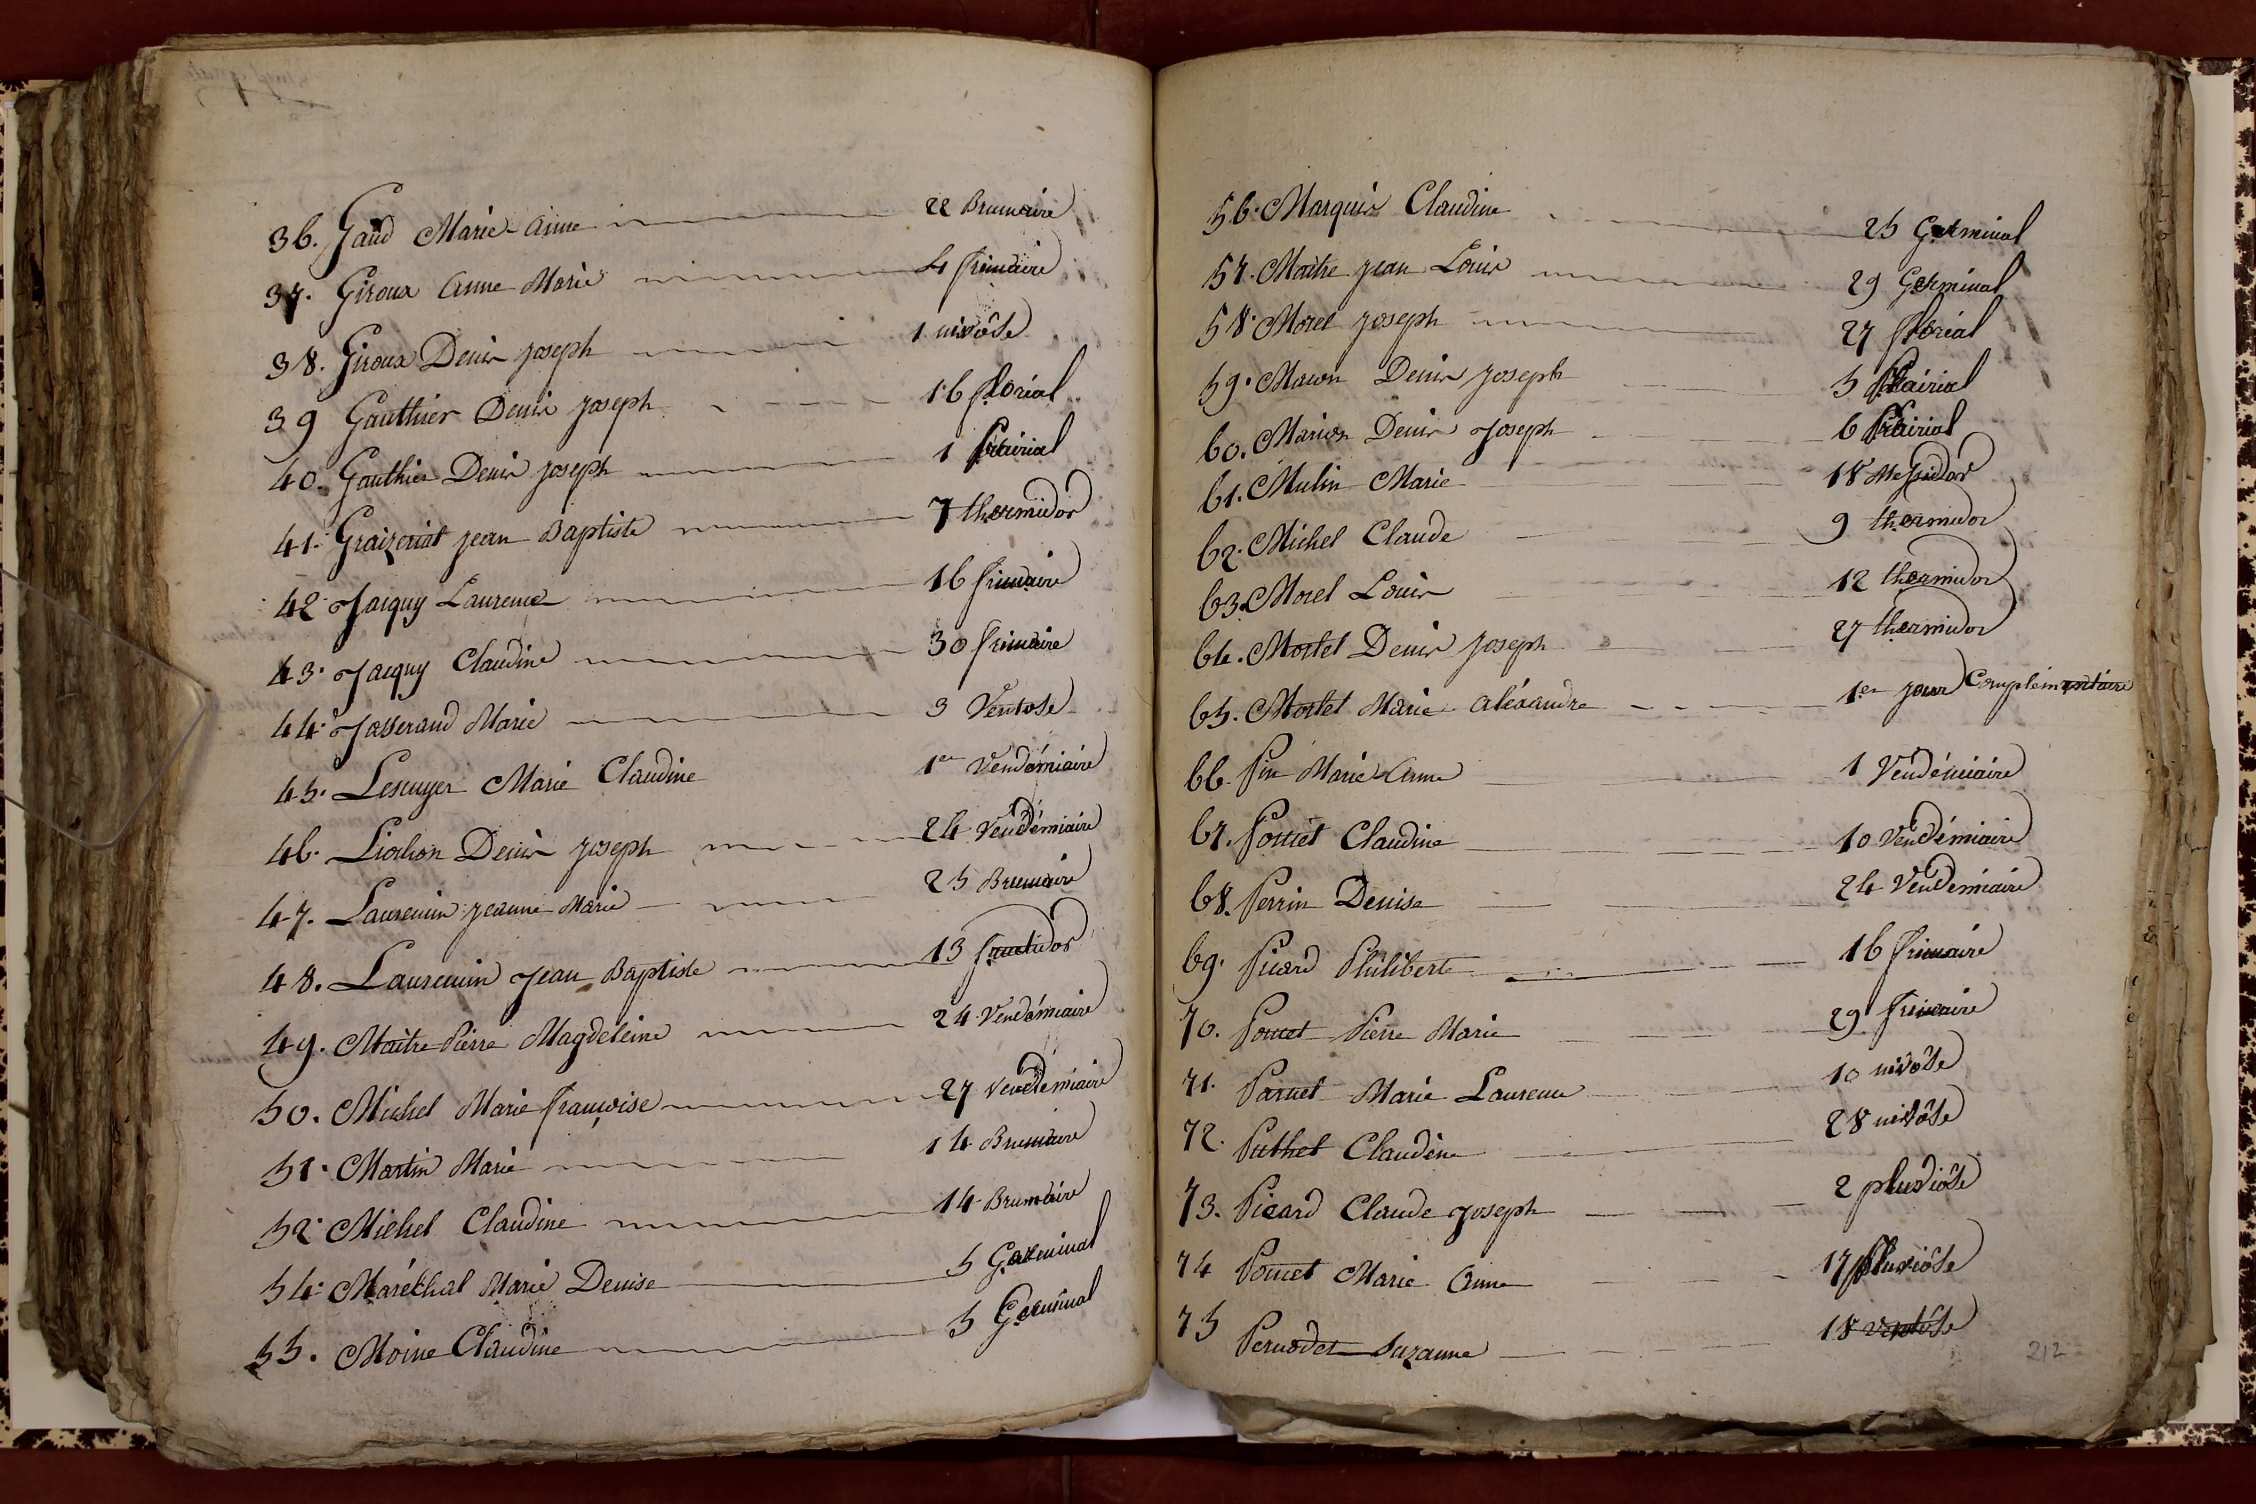 36. Gaud Marie Anne 22 Brumaire
37. Giroux Anne Marie 4 frimaire
38. Giroux Denis joseph 1 nivôse
39 Gauthier Denis joseph 16 floréal
40. Gauthier Denis joseph 1 prairial
41. jean Baptiste 7 thermidor
42. Jacquy Laurence 16 frimaire
43. Jacquy Claudine 30 frimaire
44. Josserand Marie 3 Ventose
45. Lescuyer Marie Claudine 1er Vendémiaire
46. Liochon Denis joseph 24 Vendémiaire
47. Laurencin jeanne Marie 25 Brumaire
48. Laurencin jean Baptiste 13 fructidor
49. Maitre Pierre Magdeleine 24 Vendémiaire
50. Michel Marie françoise 27 Vendémiaire
51. Martin Marie 14 Brumaire
52. Michel Claudine 14 Brumaire
54. Maréchal Marie Denise 5 Germinal
55. Moine Claudine 5 Germinal
56. Marquis Claudine 25 Germinal
57. Maitre jean Louis 29 Germinal
58. Morel joseph 27 floréal
59. Macon Denis joseph 5 Prairial
60. Marion Denis joseph 6 Prairial
61. Mulin Marie 18 Messidor
62. Michel Claude 9 thermidor
63. Morel Louis 12 thermidor
64. Mortel Denis joseph 27 thermidor
65. Mortel Marie aléxandre 1er jour Complémentaire
66. Pin Marie Anne 1 Vendémiaire
67. Poncet Claudine 10 Vendémiaire
68. Perrin Denise 24 Vendemiaire
69. Picard Philiberte 16 frimaire
70. Poncet Pierre Marie 29 frimaire
71. Marie Laurence 10 nivôse
72. Puthet Claudine 28 nivôse
73. Picard Claude joseph 2 pluviôse
74 Poncet Marie Anne 17 pluviôse
75 Pernodet Suzanne 18 ventôse
212